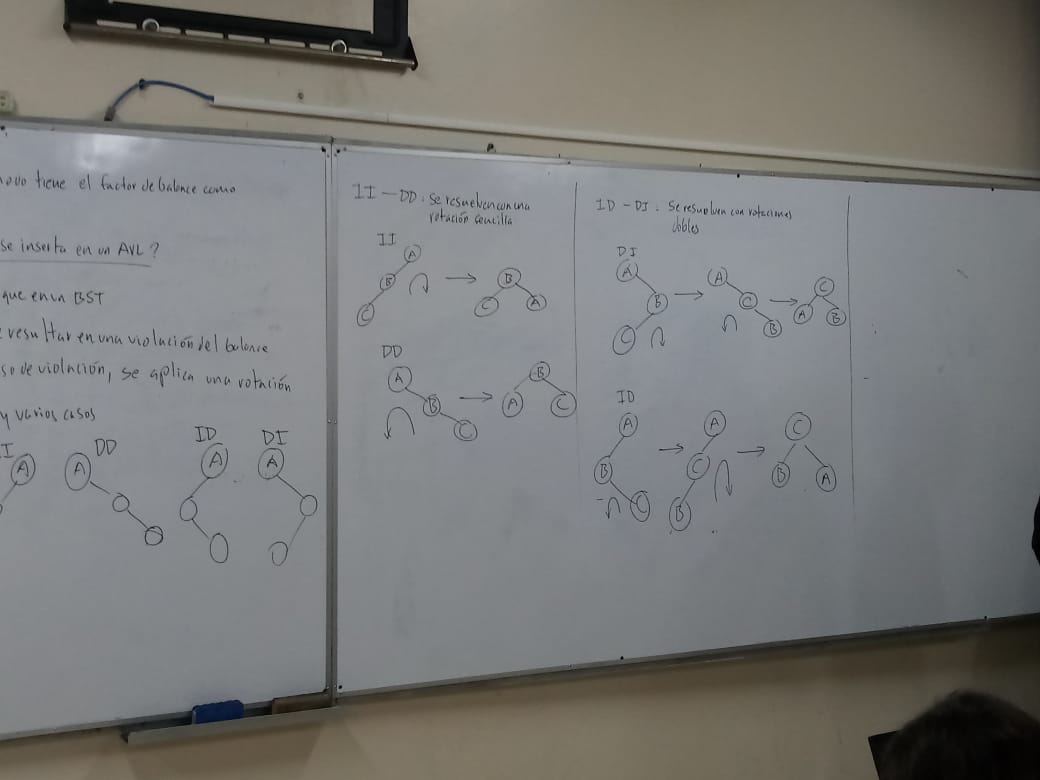 tiene el factor de balance como
se inserta en un AVL?
que en un BST
resultar en una violación del balance
so de violación, se aplica una rotación
y varios casos
I
DD
ID
DI
A
A
A
A
II - DD: Se resuelven con una
rotación sencilla
II
A
B
C
B
C
A
DD
A
B
C
B
A
C
ID - DI: Se resuelven con rotaciones
dobles
DI
A
B
C
A
C
B
C
A
B
ID
A
B
C
A
C
B
C
B
A